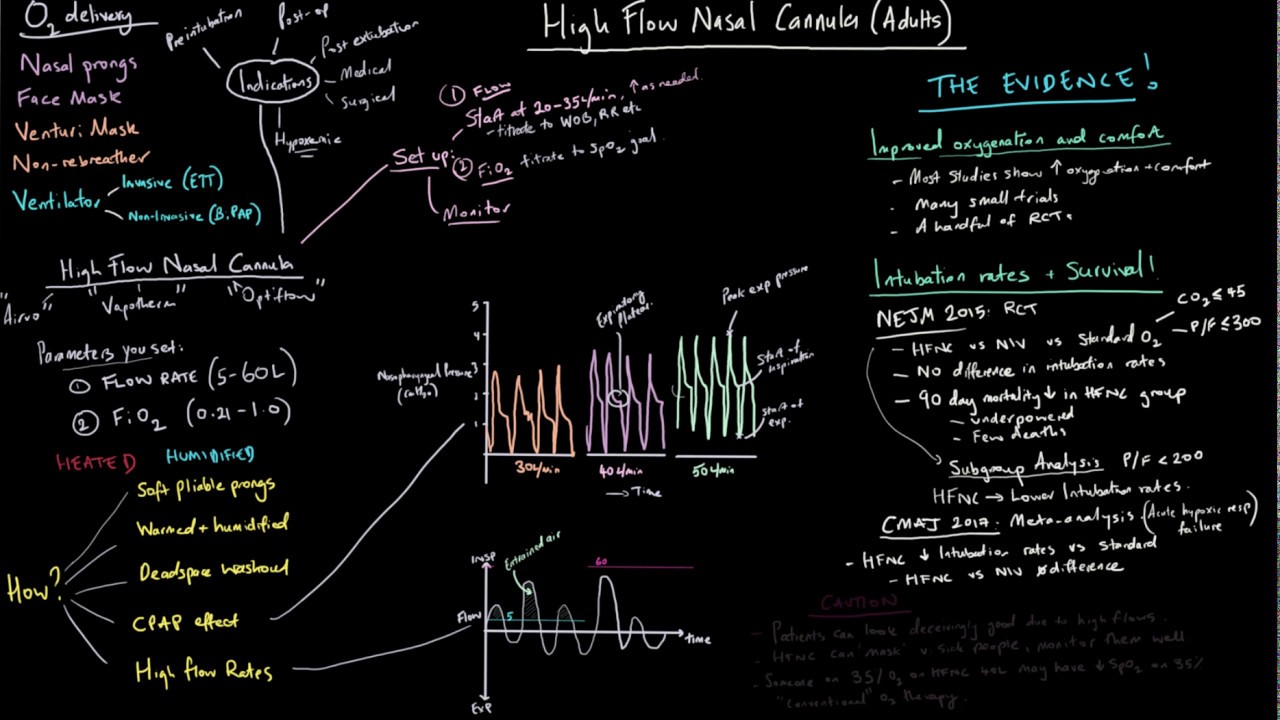 High Flow Nasal Cannula (Adults)
O₂ delivery
Nasal prongs
Face Mask
Venturi Mask
Non-rebreather
Ventilator
Invasive (ETT)
Non-Invasive (BiPAP)
Preintubation
Post-op
Post extubation
Indications
Medical
Surgical
Hypoxemic
Set up:
① Flow
Start at 20-35L/min, ↑ as needed.
- titrate to WOB, RR etc
② FiO₂ titrate to SpO₂ goal
Monitor
High Flow Nasal Cannula
"Airvo"
"Vapotherm"
"Optiflow"
Parameters you set:
① FLOW RATE (5-60L)
② FiO₂ (0.21-1.0)
HEATED HUMIDIFIED
How?
Soft pliable prongs
Warmed + humidified
Deadspace washout
CPAP effect
High flow Rates
5
4
3
2
1
Nasopharyngeal Pressure
(cmH₂O)
Expiratory plateau
Peak exp pressure
Start of inspiration
Start of exp.
30L/min
40L/min
50L/min
→ Time
Insp
Flow
Exp
Entrained air
5
60
time
THE EVIDENCE!
Improved oxygenation and comfort
- Most studies show ↑ oxygenation + comfort
- Many small trials
- A handful of RCTs
Intubation rates + Survival!
NEJM 2015: RCT
CO₂ ≤ 45
P/F ≤ 300
- HFNC vs NIV vs Standard O₂
- NO difference in intubation rates
- 90 day mortality ↓ in HFNC group
- underpowered
- Few deaths
Subgroup Analysis P/F < 200
HFNC → Lower Intubation rates.
CMAJ 2017: Meta-analysis (Acute hypoxic resp failure)
- HFNC ↓ Intubation rates vs Standard
- HFNC vs NIV ø difference
CAUTION
- Patients can look deceivingly good due to high flows.
- HFNC can "mask" v. sick people, monitor them well
- Someone on 35% O₂ on HFNC 40L may have ↓ SpO₂ on 35%
"conventional" O₂ therapy.